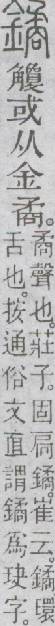 鐍觼或从金矞。
矞聲也。莊子。固扃鐍。崔云。鐍環
舌也。按通俗文直謂鐍爲玦字。